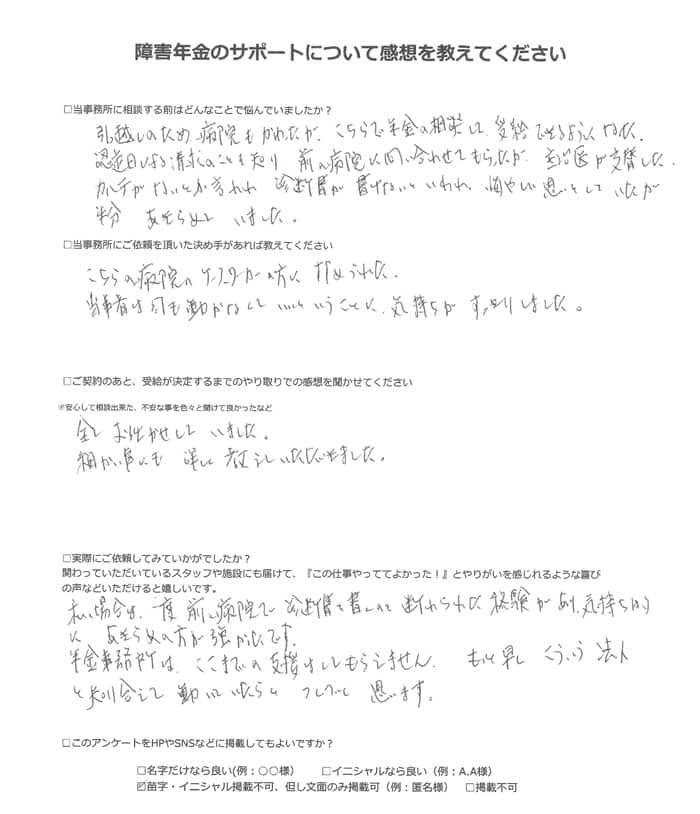 障害年金のサポートについて感想を教えてください
□当事務所に相談する前はどんなことで悩んでいましたか？
引越しのため、病院もかわたが、こちらで年金の相談して、受給できるようになった。
認定日による請求のことも知り 前の病院に問い合わせてもらったが、主治医が交替した。
カルテがないとか言われ 診断書が書けないといわれ、悔やしい思いをしていたが
半分 あきらめて いました。
□当事務所にご依頼を頂いた決め手があれば教えてください
こちらの病院のケースワーカーの方に すすめられた。
当事者は何も動かなくて いいということに、気持ちが すっきりしました。
□ご契約のあと、受給が決定するまでのやり取りでの感想を聞かせてください
※安心して相談出来た、不安な事を色々と聞けて良かったなど
全て お任せして いました。
細かい事にも 詳しく 教えていただきました。
□実際にご依頼してみていかがでしたか？
関わっていただいているスタッフや施設にも届けて、『この仕事やっててよかった！』とやりがいを感じれるような喜び
の声などいただけると嬉しいです。
私の場合は、一度 前の病院で 診断書を書くのを 断わられた 経験があり、気持ち的
に あきらめの方が 強かたです。
年金事務所は、ここまでの支援はしてもらえません、 もっと早く こういう 法人
と知り合えて 動いていたらと つくづく 思います。
□このアンケートをHPやSNSなどに掲載してもよいですか？
□名字だけなら良い(例：○○様） □イニシャルなら良い（例：A.A様）
☑苗字・イニシャル掲載不可、但し文面のみ掲載可（例：匿名様） □掲載不可